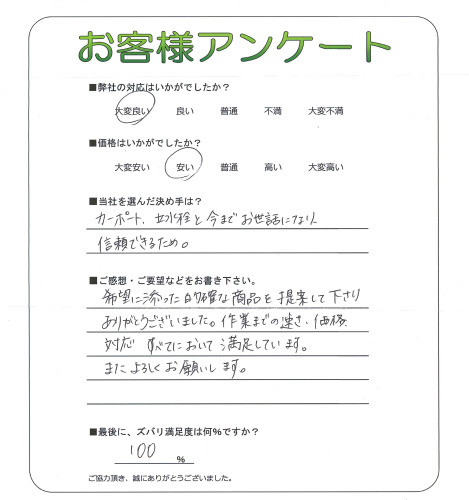 お客様アンケート
■弊社の対応はいかがでしたか？
大変良い 良い 普通 不満 大変不満
■価格はいかがでしたか？
大変安い 安い 普通 高い 大変高い
■当社を選んだ決め手は？
カーポート、立水栓と今までお世話になり
信頼できるため。
■ご感想・ご要望などをお書き下さい。
希望に添った的確な商品を提案して下さり
ありがとうございました。作業までの速さ、価格
対応 すべてにおいて満足しています。
またよろしくお願いします。
■最後に、ズバリ満足度は何％ですか？
100 ％
ご協力頂き、誠にありがとうございました。